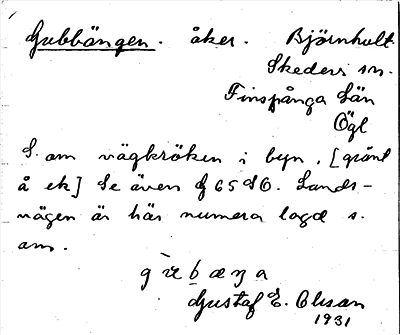 Gubbängen. åker. Björnhult
Skedevi sn.
Finspånga Län
Ögl
S. om vägkröken i byn. [gränt
å ek] Se även G 65 SO. Lands-
vägen är här numera lagd s.
om.
Gustaf E. Olsson
1931